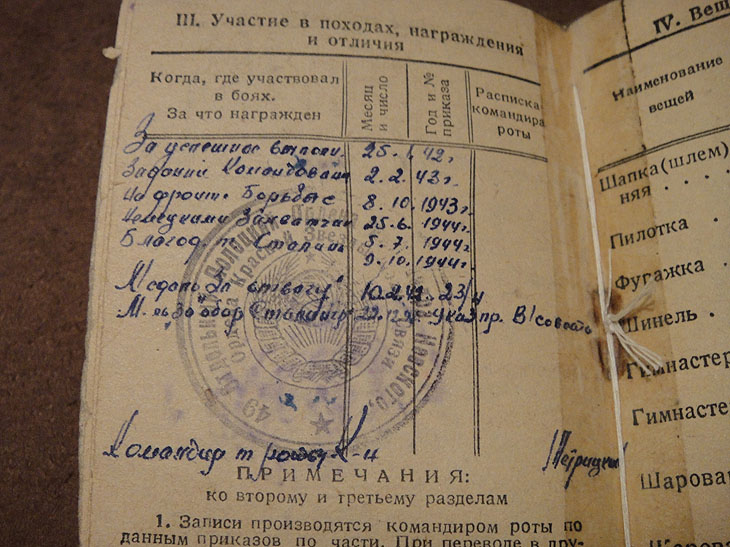 III. Участие в походах, награждения
и отличия
Когда, где участвовал
в боях.
За что награжден
Месяц
и число
Год и №
приказа
Расписка
командира
роты
За успешное выполн. 25. 1. 42 г.
Заданий Командован 2. 2. 43 г.
на фронте Борьбы с 8. 10. 1943 г.
немецкими Захватчик 25. 6. 1944 г.
Благод. т. Сталин 5. 7. 1944 г.
9. 10. 1944 г.
Медаль За отвагу"
М. "за обор. Сталингр" Указ пр. В/совета
49
Орденов
Красной Звезды
Невского,
связи
Командир роты
ПРИМЕЧАНИЯ:
ко второму и третьему разделам
1. Записи производятся командиром роты по
данным приказов по части. При переводе в дру-
IV. Вещ
Наименование
вещей
Шапка (шлем)
няя . . . .
Пилотка .
Фугажка .
Шинель .
Гимнастер
Гимнасте
Шарова